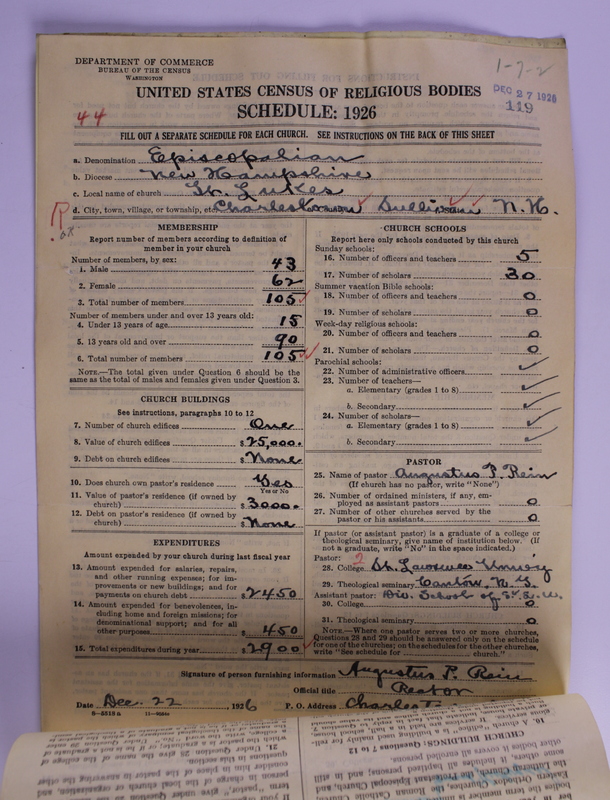 DEPARTMENT OF COMMERCE
BUREAU OF THE CENSUS
WASHINGTON
1-7-2
UNITED STATES CENSUS OF RELIGIOUS BODIES
DEC 27 1926
119
44
SCHEDULE: 1926
FILL OUT A SEPARATE SCHEDULE FOR EACH CHURCH. SEE INSTRUCTIONS ON THE BACK OF THIS SHEET
a. Denomination Episcopalian
b. Diocese New Hampshire
c. Local name of church St. Lukes
d. City, town, village, or township, etc. Charlestown Sullivan N.H.
R
MEMBERSHIP
Report number of members according to definition of
member in your church
Number of members, by sex:
1. Male 43
2. Female 62
3. Total number of members 105
Number of members under and over 13 years old:
4. Under 13 years of age 15
5. 13 years old and over 90
6. Total number of members 105
NOTE.—The total given under Question 6 should be
same as the total of males and females given under Question 3.
CHURCH BUILDINGS
See instructions, paragraphs 10 to 12
7. Number of church edifices One
8. Value of church edifices $25,000.
9. Debt on church edifices $ None
10. Does church own pastor's residence? Yes
Yes or No
11. Value of pastor's residence (if owned by
church) $3000.
12. Debt on pastor's residence (if owned by
church) $ None
EXPENDITURES
Amount expended by your church during last fiscal year
13. Amount expended for salaries, repairs,
and other running expenses; for im-
provements or new buildings; and for
payments on church debt $2450
14. Amount expended for benevolences, in-
cluding home and foreign missions; for
denominational support; and for all
other purposes $450
15. Total expenditures during year $2900
CHURCH SCHOOLS
Report here only schools conducted by this church
Sunday schools:
16. Number of officers and teachers 5
17. Number of scholars 30
Summer vacation Bible schools:
18. Number of officers and teachers 0
19. Number of scholars 0
Week-day religious schools:
20. Number of officers and teachers 0
21. Number of scholars 0
Parochial schools:
22. Number of administrative officers
23. Number of teachers—
a. Elementary (grades 1 to 8)
b. Secondary
24. Number of scholars—
a. Elementary (grades 1 to 8)
b. Secondary
PASTOR
25. Name of pastor Augustus P. Rein
(If church has no pastor, write "None")
26. Number of ordained ministers, if any, em-
ployed as assistant pastors 0
27. Number of other churches served by the
pastor or his assistants 0
If pastor (or assistant pastor) is a graduate of a college or
theological seminary, give name of institution below. (If
not a graduate, write "No" in the space indicated.)
Pastor: 2
28. College St. Lawrence Univ
29. Theological seminary Canton, N.Y.
Assistant pastor: Div. School of St. L. U.
30. College 0
31. Theological seminary 0
NOTE.—Where one pastor serves two or more churches,
Questions 28 and 29 should be answered only on the schedule
for one of the churches; on the schedules for the other churches,
write "See schedule for church."
Signature of person furnishing information Augustus P. Rein
Official title Rector
Date Dec. 22, 1926 P. O. Address
8-5518a
CHURCH BUILDINGS: Questions 7 to 12